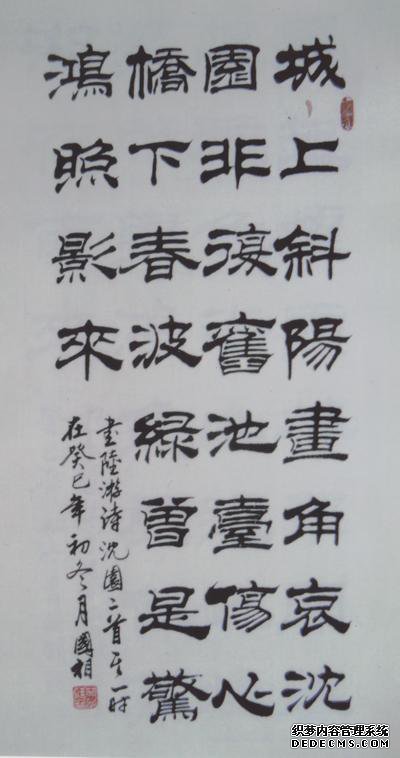 城上斜陽畫角哀沈
園非復舊池臺傷心
橋下春波綠曾是驚
鴻照影來
書陸游诗沈園二首其一时
在癸巳年初冬月國相
织梦内容管理系统
DEDECMS.COM